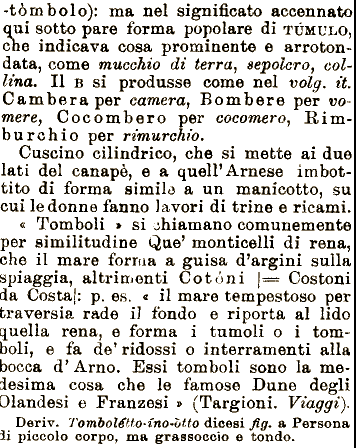 -tòmbolo): ma nel significato accennato
qui sotto pare forma popolare di TÚMULO,
che indicava cosa prominente e arroton-
data, come mucchio di terra, sepolcro, col-
lina. Il B si produsse come nel volg. it.
Cambera per camera, Bombere per vo-
mere, Cocombero per cocomero, Rim-
burchio per rimurchio.
Cuscino cilindrico, che si mette ai due
lati del canapè, e a quell'Arnese imbot-
tito di forma simile a un manicotto, su
cui le donne fanno lavori di trine e ricami.
« Tomboli » si chiamano comunemente
per similitudine Que' monticelli di rena,
che il mare forma a guisa d'argini sulla
spiaggia, altrimenti Cotóni [= Costoni
da Costa]: p. es. « il mare tempestoso per
traversia rade il fondo e riporta al lido
quella rena, e forma i tumoli o i tom-
boli, e fa de' ridossi o interramenti alla
bocca d'Arno. Essi tomboli sono la me-
desima cosa che le famose Dune degli
Olandesi e Franzesi » (Targioni. Viaggi).
Deriv. Tombolétto-íno-òtto dicesi fig. a Persona
di piccolo corpo, ma grassoccio e tondo.